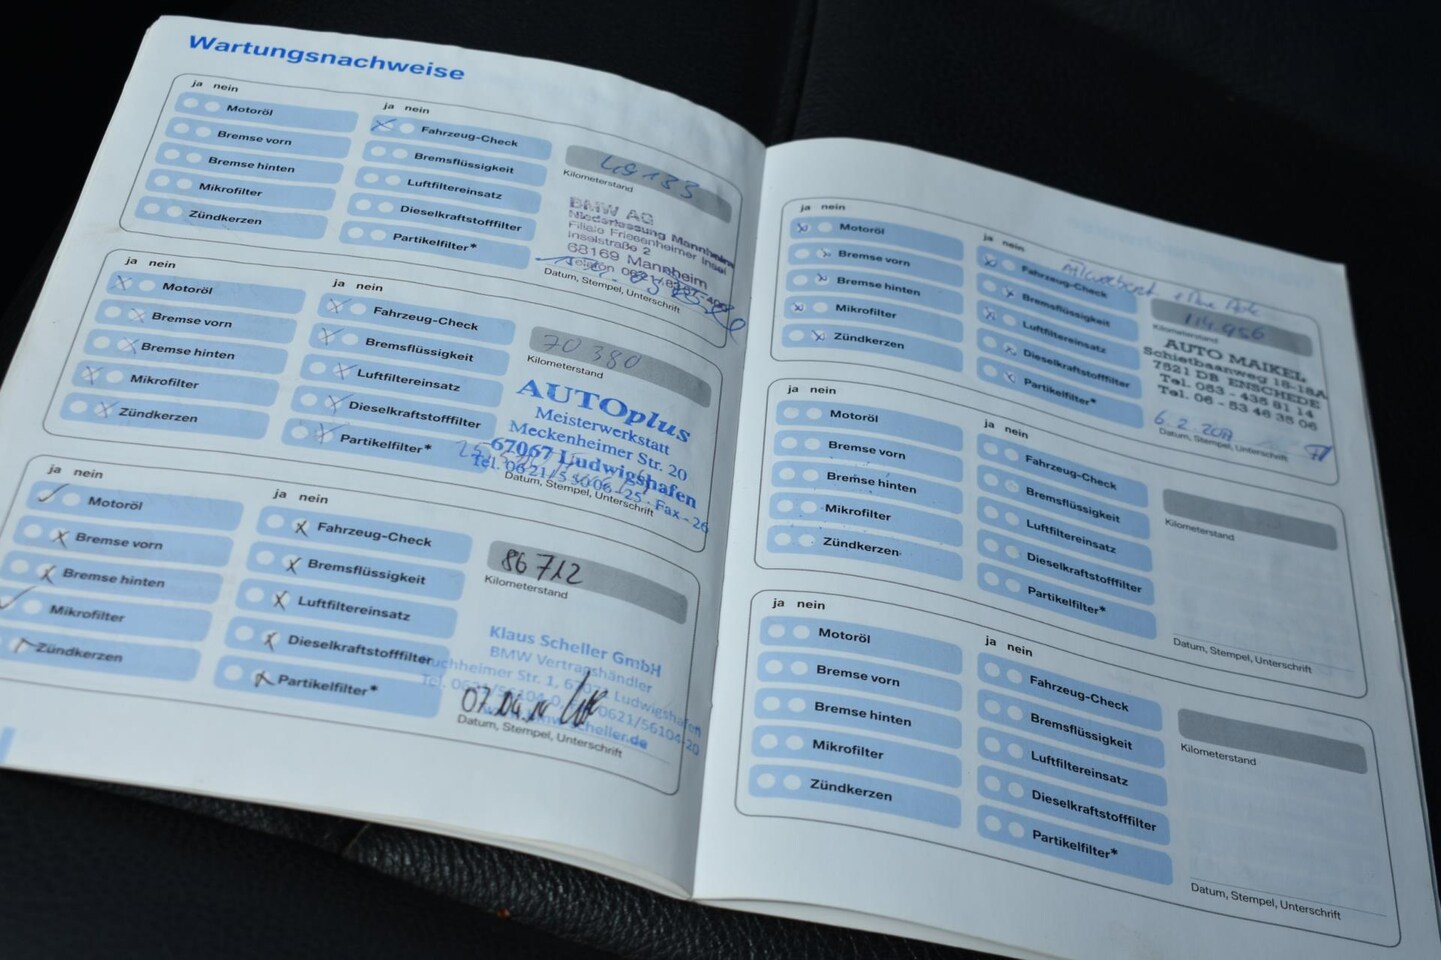 Wartungsnachweise
ja nein
Motoröl
Bremse vorn
Bremse hinten
Mikrofilter
Zündkerzen
ja nein
Fahrzeug-Check
Bremsflüssigkeit
Luftfiltereinsatz
Dieselkraftstofffilter
Partikelfilter*
49133
Kilometerstand
BMW AG
Niederlassung Mannheim
Filiale Friesenheimer Insel
Inselstraße 2
68169 Mannheim
Telefon
Datum, Stempel, Unterschrift
ja nein
Motoröl
Bremse vorn
Bremse hinten
Mikrofilter
Zündkerzen
ja nein
Fahrzeug-Check
Bremsflüssigkeit
Luftfiltereinsatz
Dieselkraftstofffilter
Partikelfilter*
70 380
Kilometerstand
AUTOplus
Meisterwerkstatt
Meckenheimer Str. 20
67067 Ludwigshafen
Tel. 0621/53006-25 · Fax - 26
Datum, Stempel, Unterschrift
ja nein
Motoröl
Bremse vorn
Bremse hinten
Mikrofilter
Zündkerzen
ja nein
Fahrzeug-Check
Bremsflüssigkeit
Luftfiltereinsatz
Dieselkraftstofffilter
Partikelfilter*
86712
Kilometerstand
Klaus Scheller GmbH
BMW Vertragshändler
Str. 1, Ludwigshafen
0621/56104-20
07.04.
Datum, Stempel, Unterschrift
ja nein
Motoröl
Bremse vorn
Bremse hinten
Mikrofilter
Zündkerzen
ja nein
Fahrzeug-Check
Bremsflüssigkeit
Luftfiltereinsatz
Dieselkraftstofffilter
Partikelfilter*
114.956
Kilometerstand
AUTO MAIKEL
Schietbaanweg 18-18A
7521 DB ENSCHEDE
Tel. 053 - 435 81 14
Tel. 06 - 53 46 35 06
6.2.2017
Datum, Stempel, Unterschrift
ja nein
Motoröl
Bremse vorn
Bremse hinten
Mikrofilter
Zündkerzen
ja nein
Fahrzeug-Check
Bremsflüssigkeit
Luftfiltereinsatz
Dieselkraftstofffilter
Partikelfilter*
Kilometerstand
Datum, Stempel, Unterschrift
ja nein
Motoröl
Bremse vorn
Bremse hinten
Mikrofilter
Zündkerzen
ja nein
Fahrzeug-Check
Bremsflüssigkeit
Luftfiltereinsatz
Dieselkraftstofffilter
Partikelfilter*
Kilometerstand
Datum, Stempel, Unterschrift